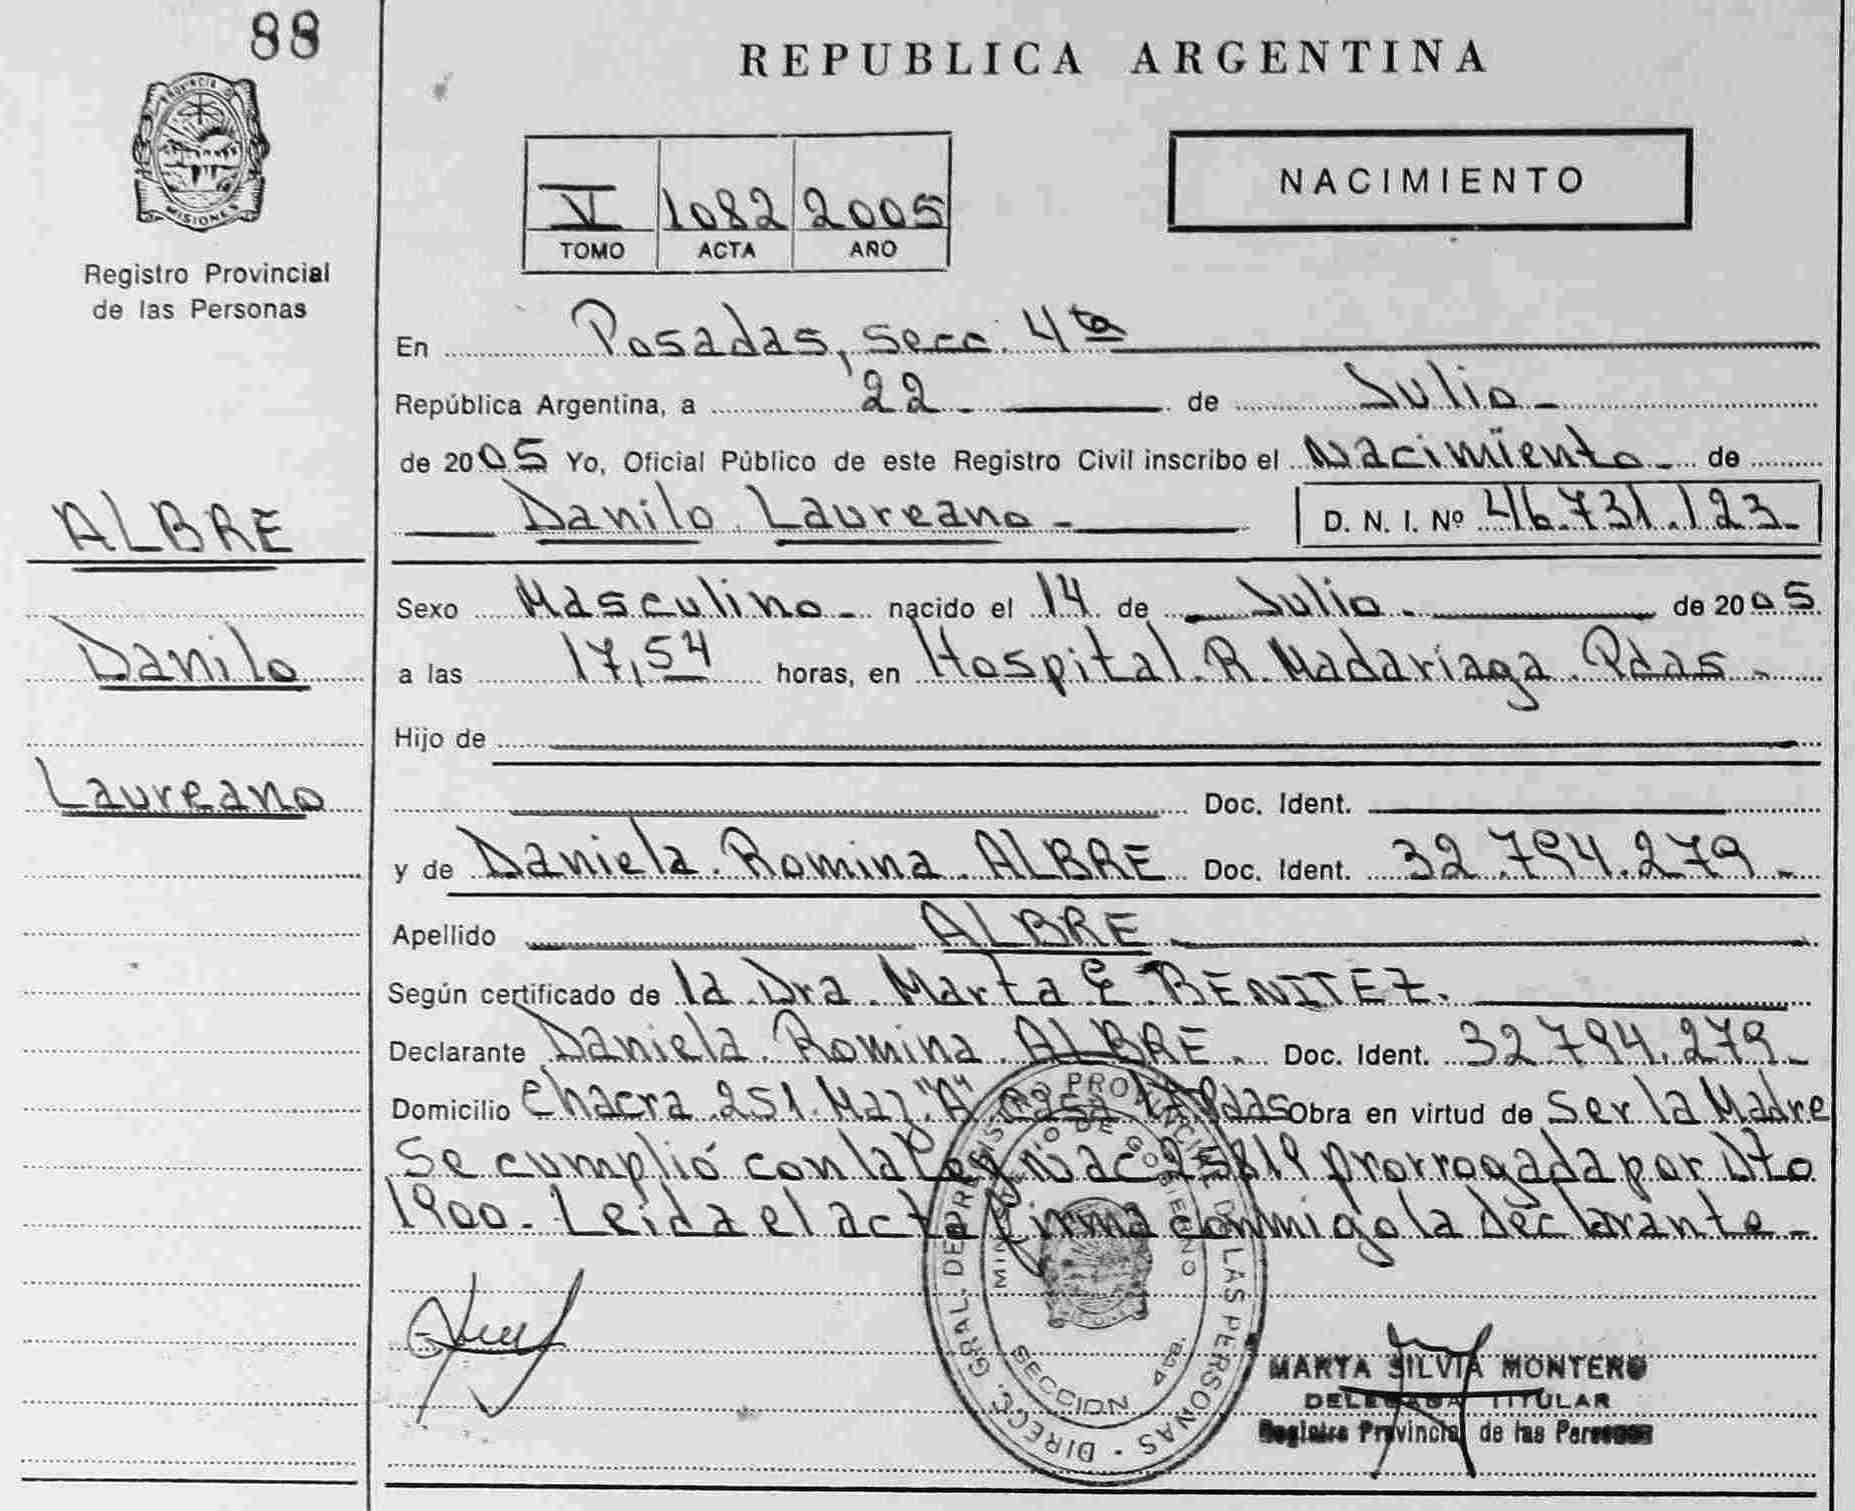 88
PROVINCIA D
MISIONES
Registro Provincial
de las Personas
ALBRE
Danilo
Laureano
REPUBLICA ARGENTINA
V 1082 2005
TOMO ACTA AÑO
NACIMIENTO
En Posadas, secc. 4ta
República Argentina, a 22 de Julio
de 2005 Yo, Oficial Público de este Registro Civil inscribo el Nacimiento de
Danilo Laureano D. N. I. Nº 46.731.123
Sexo Masculino nacido el 14 de Julio de 2005
a las 17,54 horas, en Hospital R. Madariaga Pdas
Hijo de
Doc. Ident.
y de Daniela Romina ALBRE Doc. Ident. 32.794.279
Apellido ALBRE
Según certificado de la Dra. Marta E BENITEZ.
Declarante Daniela Romina ALBRE. Doc. Ident. 32794.279
Domicilio Chacra 251. Maz. "A" casa Pdas Obra en virtud de Ser la Madre
Se cumplió con la Ley nac 25819 prorrogada por Dto
1900. Leida el acta firma conmigo la declarante
DIRECC. GRAL. DE REGISTRO PROVINCIAL DE LAS PERSONAS
MINISTERIO DE GOBIERNO
SECCION 4ta.
MARTA SILVIA MONTERO
DELEGADA TITULAR
Registro Provincial de las Personas